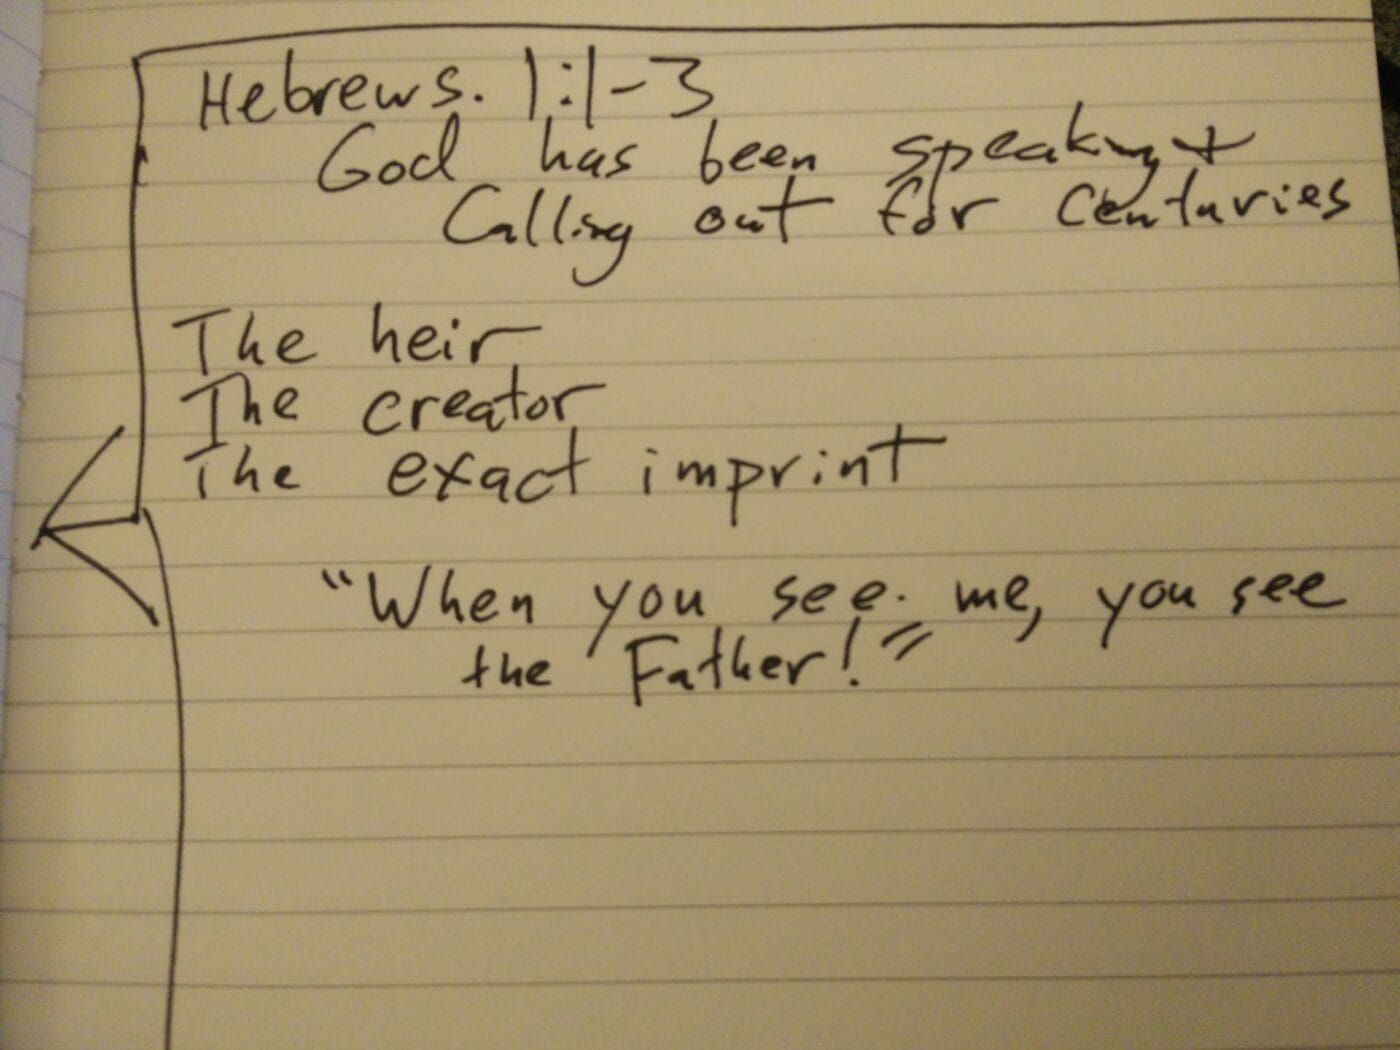 Hebrews. 1:1-3
God has been speaking +
Calling out for centuries
The heir
The creator
The exact imprint
"When you see. me, you see
the Father!"